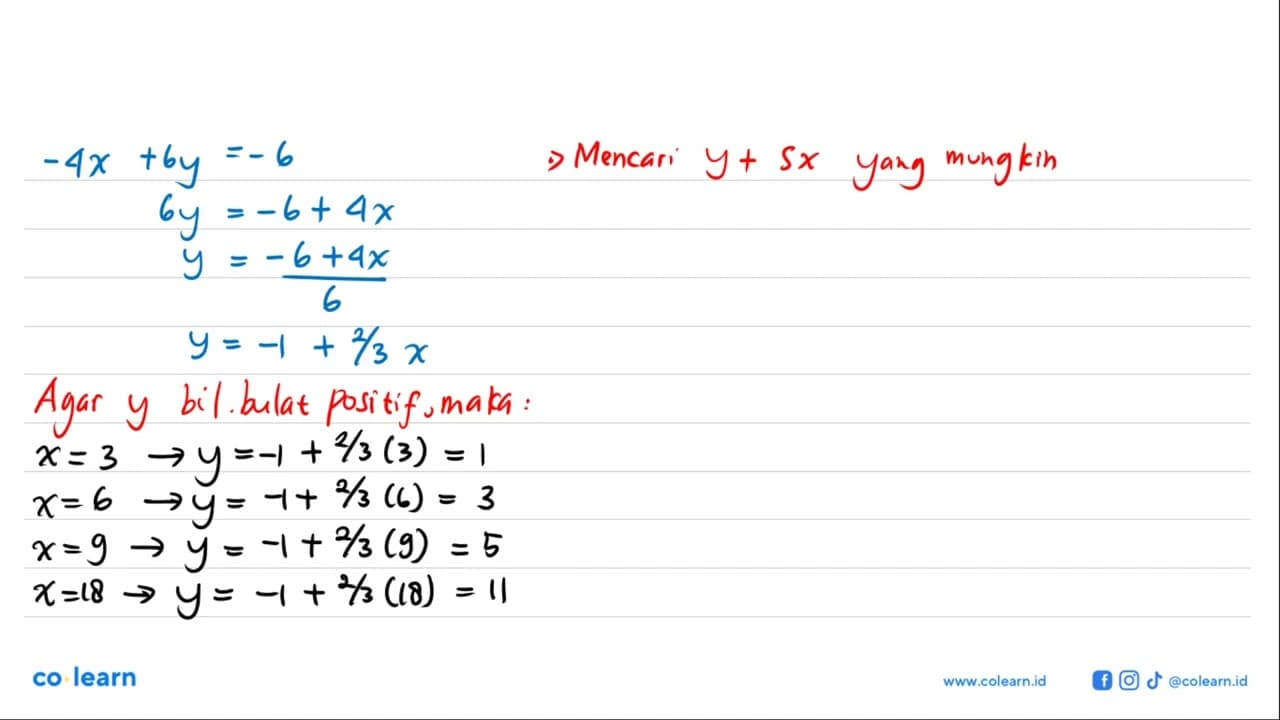 -4x + 6y = -6
6y = -6 + 4x
y = -6 + 4x
6
y = -1 + 2/3 x
Agar y bil. bulat positif, maka :
x = 3 → y = -1 + 2/3 (3) = 1
x = 6 → y = -1 + 2/3 (6) = 3
x = 9 → y = -1 + 2/3 (9) = 5
x = 18 → y = -1 + 2/3 (18) = 11
⇒ Mencari y + 5x yang mungkin
co learn
www.colearn.id
@colearn.id